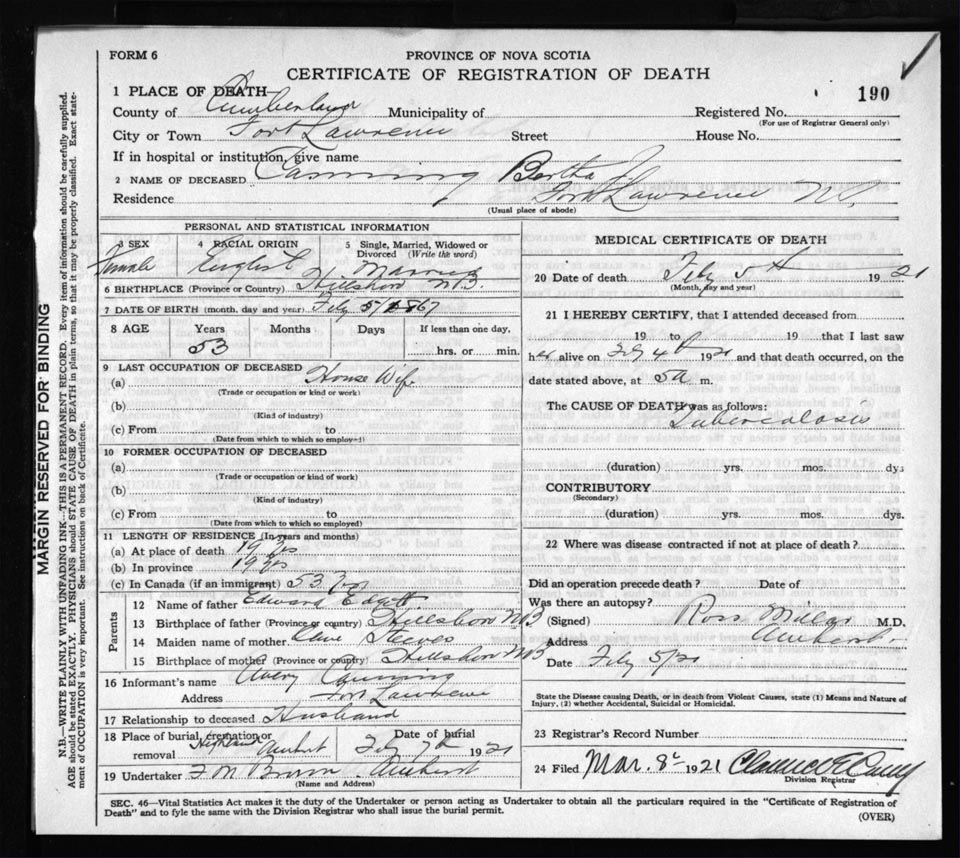 FORM 6
PROVINCE OF NOVA SCOTIA
CERTIFICATE OF REGISTRATION OF DEATH
190
1 PLACE OF DEATH
County of Cumberland Municipality of Registered No.
(For use of Registrar General only)
City or Town Fort Lawrence Street House No.
If in hospital or institution, give name
2 NAME OF DECEASED Canning Bertha J.
Residence Fort Lawrence N.S.
(Usual place of abode)
PERSONAL AND STATISTICAL INFORMATION
3 SEX 4 RACIAL ORIGIN 5 Single, Married, Widowed or Divorced (Write the word)
Female English Married
6 BIRTHPLACE (Province or Country) Hillsboro N.B.
7 DATE OF BIRTH (month, day and year) Feby 5/1867
8 AGE Years Months Days If less than one day,
53 hrs. or min.
9 LAST OCCUPATION OF DECEASED
(a) House Wife
(Trade or occupation or kind or work)
(b)
(Kind of industry)
(c) From to
(Date from which to which so employed)
10 FORMER OCCUPATION OF DECEASED
(a)
(Trade or occupation or kind of work)
(b)
(Kind of industry)
(c) From to
(Date from which to which so employed)
11 LENGTH OF RESIDENCE (In years and months)
(a) At place of death 19 yrs
(b) In province 19 yrs
(c) In Canada (if an immigrant) 53 yrs
Parents
12 Name of father Edward Edgett
13 Birthplace of father (Province or country) Hillsboro N B
14 Maiden name of mother Steeves
15 Birthplace of mother (Province or country) Hillsboro N B
16 Informant's name Avery Canning
Address Fort Lawrence
17 Relationship to deceased Husband
18 Place of burial, cremation or removal Highland Amherst Date of burial Feby 7th 1921
19 Undertaker F M Brown Amherst
(Name and Address)
MEDICAL CERTIFICATE OF DEATH
20 Date of death Feby 5th 1921
(Month, day and year)
21 I HEREBY CERTIFY, that I attended deceased from
19 to 19 that I last saw
her alive on Feby 4th 1921 and that death occurred, on the
date stated above, at 5 a m.
The CAUSE OF DEATH was as follows:
Tuberculosis
(duration) yrs. mos. dys
CONTRIBUTORY
(Secondary)
(duration) yrs. mos. dys.
22 Where was disease contracted if not at place of death?
Did an operation precede death? Date of
Was there an autopsy?
(Signed) Ross Millar M.D.
Address Amherst
Date Feby 5/21
State the Disease causing Death, or in death from Violent Causes, state (1) Means and Nature of
Injury, (2) whether Accidental, Suicidal or Homicidal.
23 Registrar's Record Number
24 Filed Mar. 8 1921 Clarence E
Division Registrar
SEC. 46—Vital Statistics Act makes it the duty of the Undertaker or person acting as Undertaker to obtain all the particulars required in the "Certificate of Registration of
Death" and to fyle the same with the Division Registrar who shall issue the burial permit.
(OVER)
MARGIN RESERVED FOR BINDING
N.B.—WRITE PLAINLY WITH UNFADING INK—THIS IS A PERMANENT RECORD. Every item of information should be carefully supplied.
AGE should be stated EXACTLY. PHYSICIANS should STATE CAUSE OF DEATH in plain terms, so that it may be properly classified. Exact state-
ment of OCCUPATION is very important. See instructions on back of Certificate.